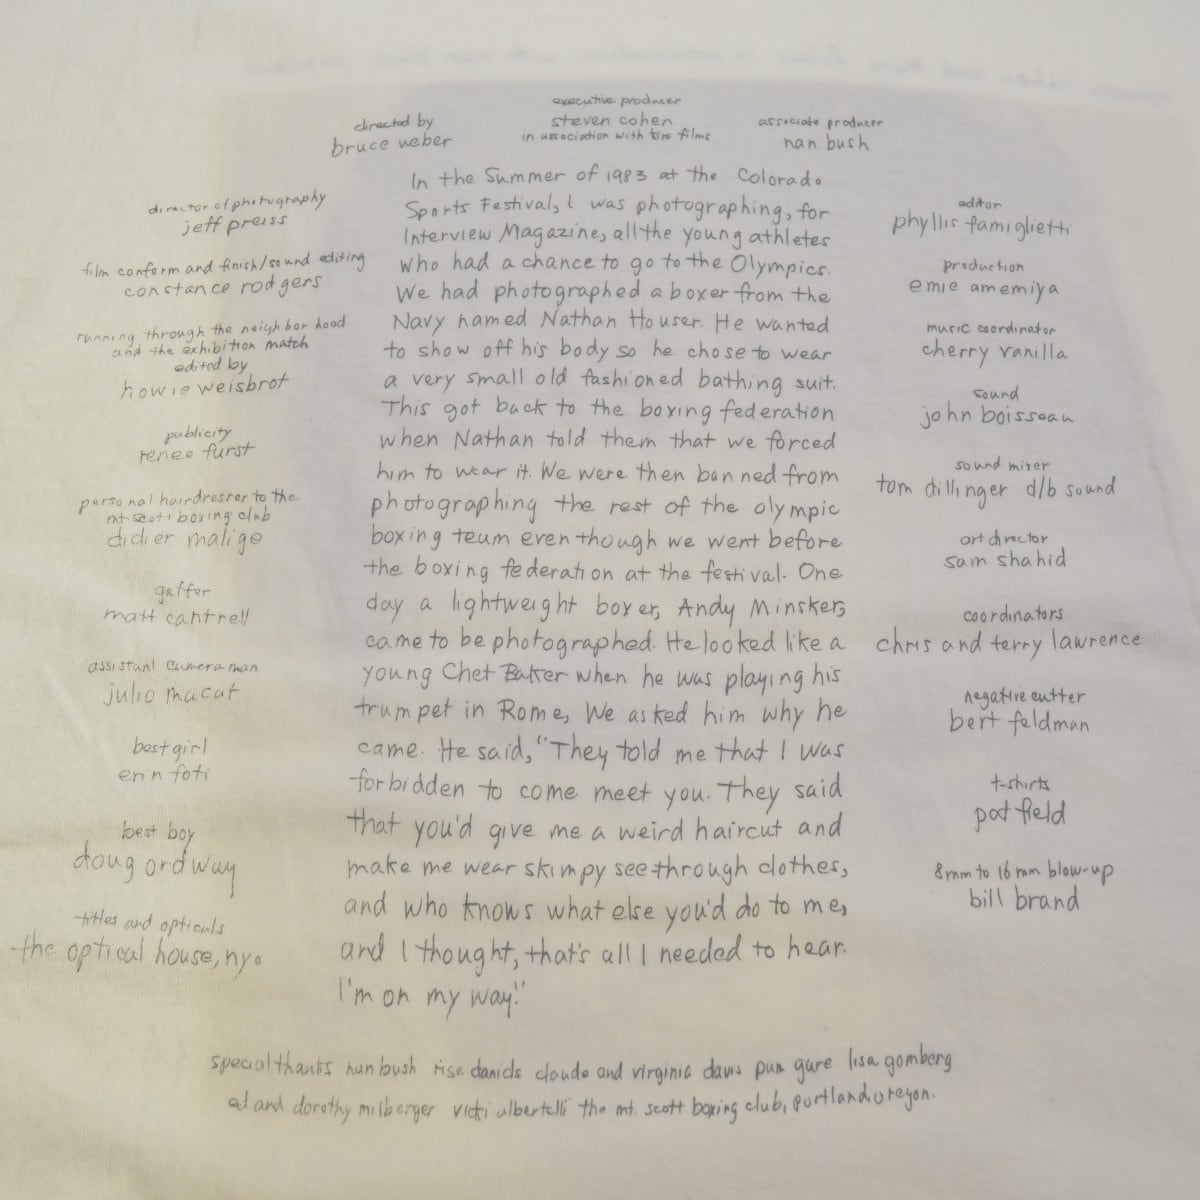 executive producer
steven cohen
in association with tire films
directed by
bruce weber
associate producer
nan bush
director of photography
jeff preiss
film conform and finish/sound editing
constance rodgers
running through the neighborhood
and the exhibition match
edited by
howie weisbrot
publicity
renee furst
personal hairdresser to the
mt scott boxing club
didier malige
gaffer
matt cantrell
assistant cameraman
julio macat
best girl
erin foti
best boy
doug ordway
titles and opticals
the optical house, ny.
In the Summer of 1983 at the Colorado
Sports Festival, I was photographing, for
Interview Magazine, all the young athletes
who had a chance to go to the Olympics.
We had photographed a boxer from the
Navy named Nathan Houser. He wanted
to show off his body so he chose to wear
a very small old fashioned bathing suit.
This got back to the boxing federation
when Nathan told them that we forced
him to wear it. We were then banned from
photographing the rest of the olympic
boxing team even though we went before
the boxing federation at the festival. One
day a lightweight boxer, Andy Minsker,
came to be photographed. He looked like a
young Chet Baker when he was playing his
trumpet in Rome, We asked him why he
came. He said, "They told me that I was
forbidden to come meet you. They said
that you'd give me a weird haircut and
make me wear skimpy see-through clothes,
and who knows what else you'd do to me,
and I thought, that's all I needed to hear.
I'm on my way!"
editor
phyllis famiglietti
production
emie amemiya
music coordinator
cherry vanilla
sound
john boisseau
sound mixer
tom dillinger d/b sound
art director
sam shahid
coordinators
chris and terry lawrence
negative cutter
bert feldman
t-shirts
pat field
8mm to 16mm blow-up
bill brand
special thanks nan bush rise daniels claude and virginia davis pam gare lisa gomberg
ed and dorothy milberger vicki albertelli the mt. scott boxing club, portland, oregon.